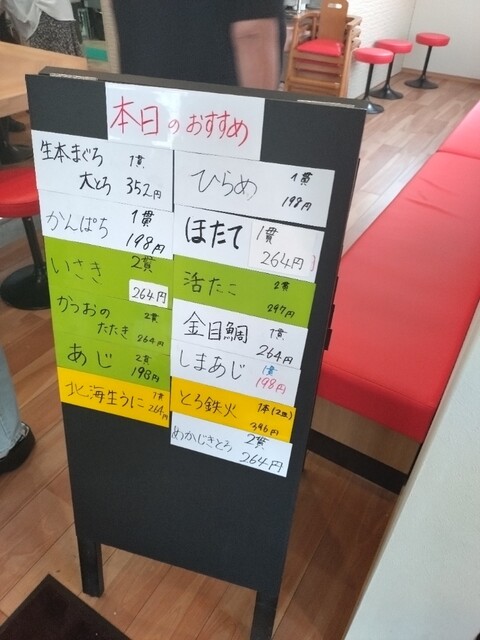 本日のおすすめ
生本まぐろ 1貫
大とろ 352円
かんぱち 1貫
198円
いさき 2貫
264円
かつおの 2貫
たたき 264円
あじ 2貫
198円
北海生うに 1貫
264円
ひらめ 1貫
198円
ほたて 1貫
264円
活たこ 2貫
297円
金目鯛 1貫
264円
しまあじ 1貫
198円
とろ鉄火 1本(2皿)
396円
めかじきとろ 2貫
264円